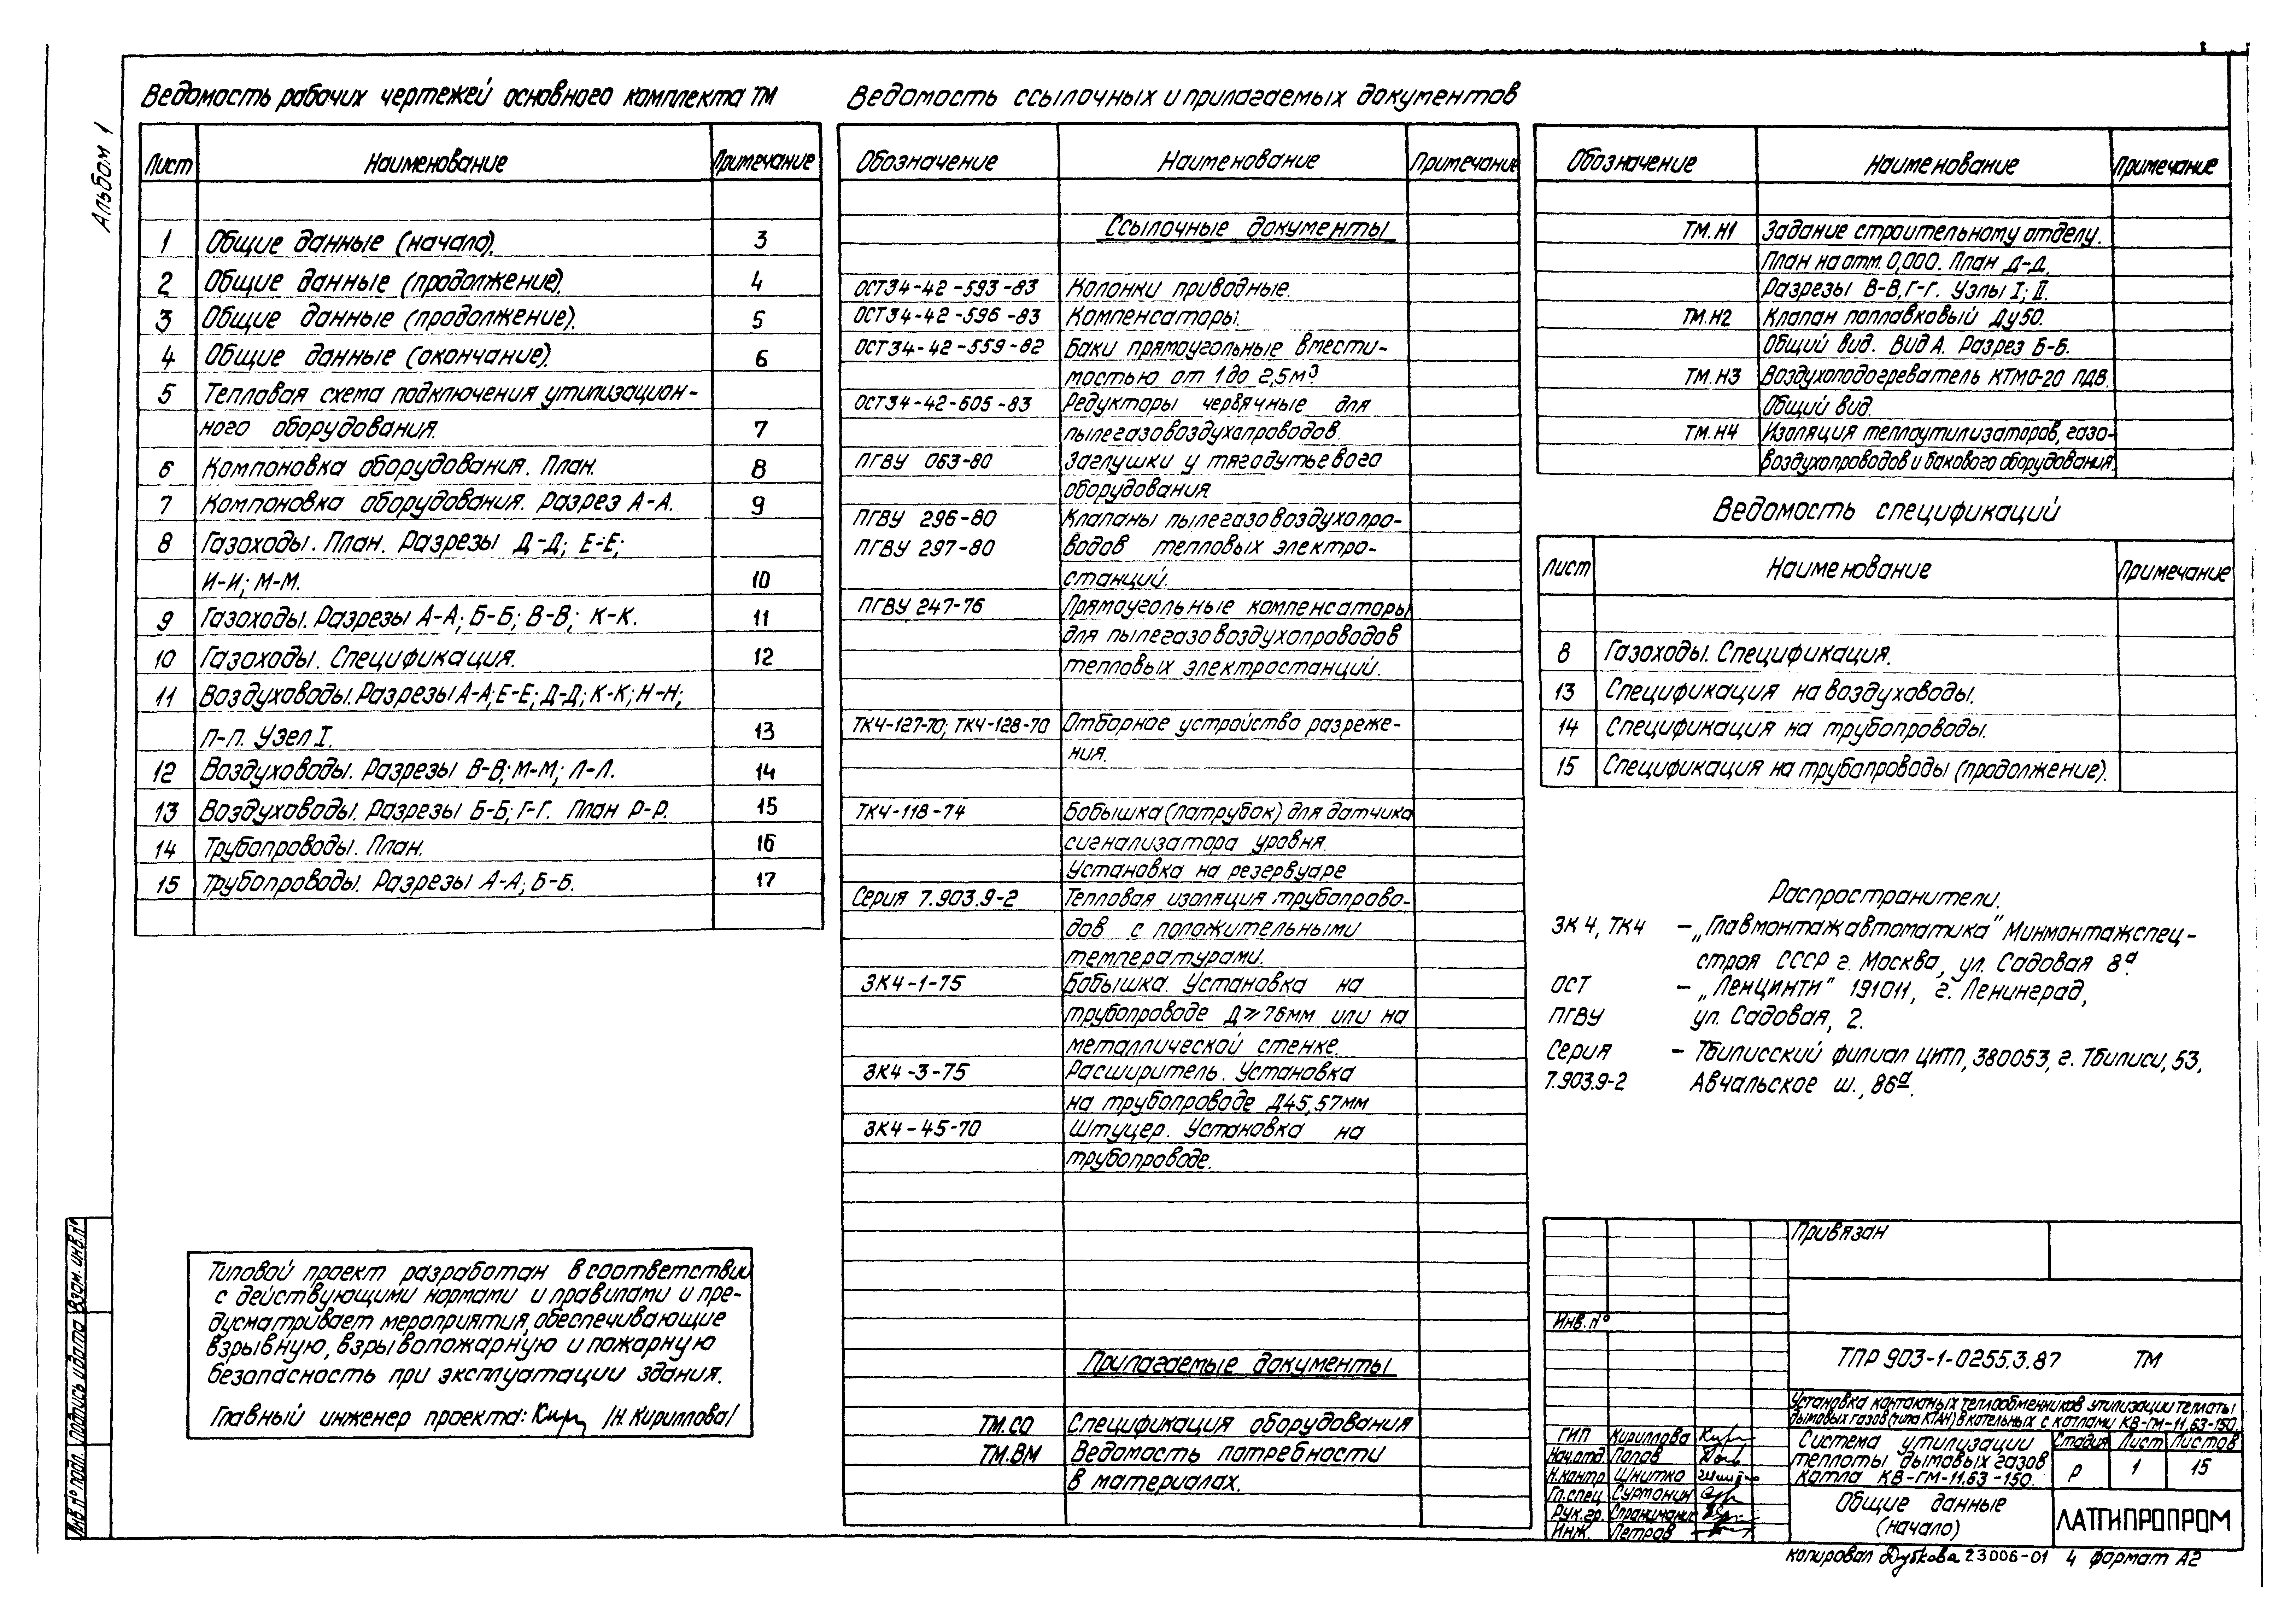 Альбом 1
Ведомость рабочих чертежей основного комплекта ТМ
Лист Наименование Примечание
1 Общие данные (начало). 3
2 Общие данные (продолжение). 4
3 Общие данные (продолжение). 5
4 Общие данные (окончание). 6
5 Тепловая схема подключения утилизацион-
ного оборудования. 7
6 Компоновка оборудования. План. 8
7 Компоновка оборудования. Разрез А-А. 9
8 Газоходы. План. Разрезы Д-Д; Е-Е;
И-И; М-М. 10
9 Газоходы. Разрезы А-А; Б-Б; В-В; К-К. 11
10 Газоходы. Спецификация. 12
11 Воздуховоды. Разрезы А-А; Е-Е; Д-Д; К-К; Н-Н;
П-П. Узел I. 13
12 Воздуховоды. Разрезы В-В; М-М; Л-Л. 14
13 Воздуховоды. Разрезы Б-Б; Г-Г. План Р-Р. 15
14 Трубопроводы. План. 16
15 Трубопроводы. Разрезы А-А; Б-Б. 17
Типовой проект разработан в соответствии
с действующими нормами и правилами и пре-
дусматривает мероприятия, обеспечивающие
взрывную, взрывопожарную и пожарную
безопасность при эксплуатации здания.
Главный инженер проекта: /Н. Кириллова/
Ведомость ссылочных и прилагаемых документов
Обозначение Наименование Примечание
Ссылочные документы
ОСТ34-42-593-83 Колонки приводные.
ОСТ34-42-596-83 Компенсаторы.
ОСТ34-42-559-82 Баки прямоугольные вмести-
мостью от 1 до 2,5м³
ОСТ34-42-605-83 Редукторы червячные для
пылегазовоздухопроводов.
ПГВУ 063-80 Заглушки у тягодутьевого
оборудования
ПГВУ 296-80 Клапаны пылегазовоздухопро-
ПГВУ 297-80 водов тепловых электро-
станций.
ПГВУ 247-76 Прямоугольные компенсаторы
для пылегазовоздухопроводов
тепловых электростанций.
ТК4-127-70; ТК4-128-70 Отборное устройство разреже-
ния.
ТК4-118-74 Бобышка (патрубок) для датчика
сигнализатора уровня.
Установка на резервуаре
Серия 7.903.9-2 Тепловая изоляция трубопрово-
дов с положительными
температурами.
ЗК4-1-75 Бобышка. Установка на
трубопроводе Д≥76мм или на
металлической стенке.
ЗК4-3-75 Расширитель. Установка
на трубопроводе Д45,57мм
ЗК4-45-70 Штуцер. Установка на
трубопроводе.
Прилагаемые документы
ТМ.СО Спецификация оборудования
ТМ.ВМ Ведомость потребности
в материалах.
Обозначение Наименование Примечание
ТМ.Н1 Задание строительному отделу.
План на отм. 0,000. План Д-Д.
Разрезы В-В, Г-Г. Узлы I; II.
ТМ.Н2 Клапан поплавковый Ду50.
Общий вид. Вид А. Разрез Б-Б.
ТМ.Н3 Воздухоподогреватель КТМО-20 ПДВ.
Общий вид.
ТМ.Н4 Изоляция теплоутилизаторов, газо-
воздухопроводов и бакового оборудования.
Ведомость спецификаций
Лист Наименование Примечание
8 Газоходы. Спецификация.
13 Спецификация на воздуховоды.
14 Спецификация на трубопроводы.
15 Спецификация на трубопроводы (продолжение).
Распространители.
ЗК 4, ТК4 – „Главмонтажавтоматика" Минмонтажспец-
строя СССР г. Москва, ул. Садовая 8ª
ОСТ – „Ленцинти" 191011, г. Ленинград,
ПГВУ ул. Садовая, 2.
Серия – Тбилисский филиал ЦИТП, 380053, г. Тбилиси, 53,
7.903.9-2 Авчальское ш., 86ª.
Привязан
Инв. №
ТПР 903-1-0255.3.87 ТМ
Установка контактных теплообменников утилизации теплоты
дымовых газов (типа КТАН) в котельных с котлами КВ-ГМ-11,63-150.
ГИП Кириллова
Нач.отд. Попов
Н.контр. Шнитко
Гл.спец. Сурмонин
Рук.гр.
Инж. Петров
Система утилизации
теплоты дымовых газов
котла КВ-ГМ-11.63-150.
Стадия Лист Листов
Р 1 15
Общие данные
(начало)
ЛАТГИПРОПРОМ
Копировал Дубкова 23006-01 4 формат А2
Инв. № подл. Подпись и дата Взам. инв. №